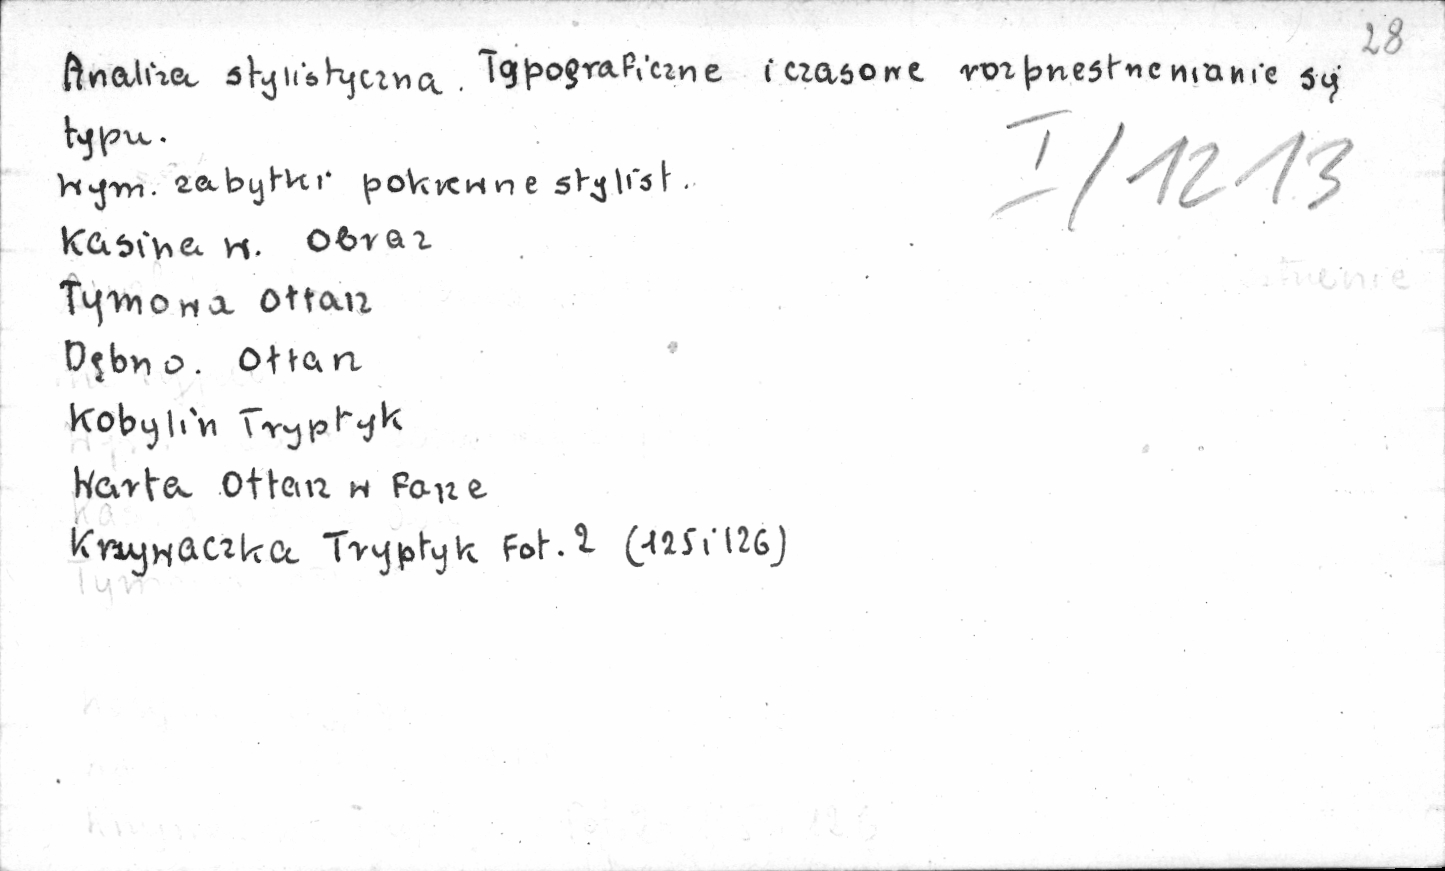 28
Analiza stylistyczna. Typograficzne i czasowe rozprzestrzenianie się
typu.
I/1213
wym. zabytki pokrewne stylist.
Kasina w. Obraz
Tymowa Ołtarz
Dębno. Ołtarz
Kobylin Tryptyk
Warta Ołtarz w Farze
Krzywaczka Tryptyk Fot. 2 (125 i 126)